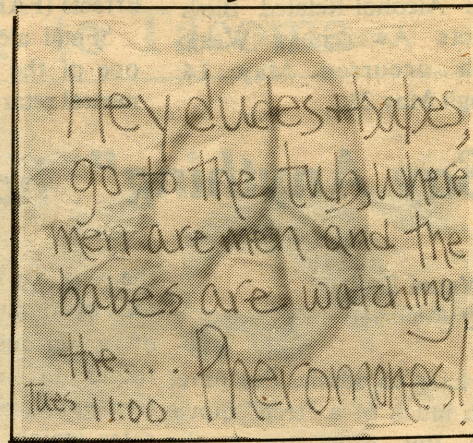 Hey dudes + babes,
go to the tub, where
men are men and the
babes are watching
the... Pheromones!
Tues 11:00